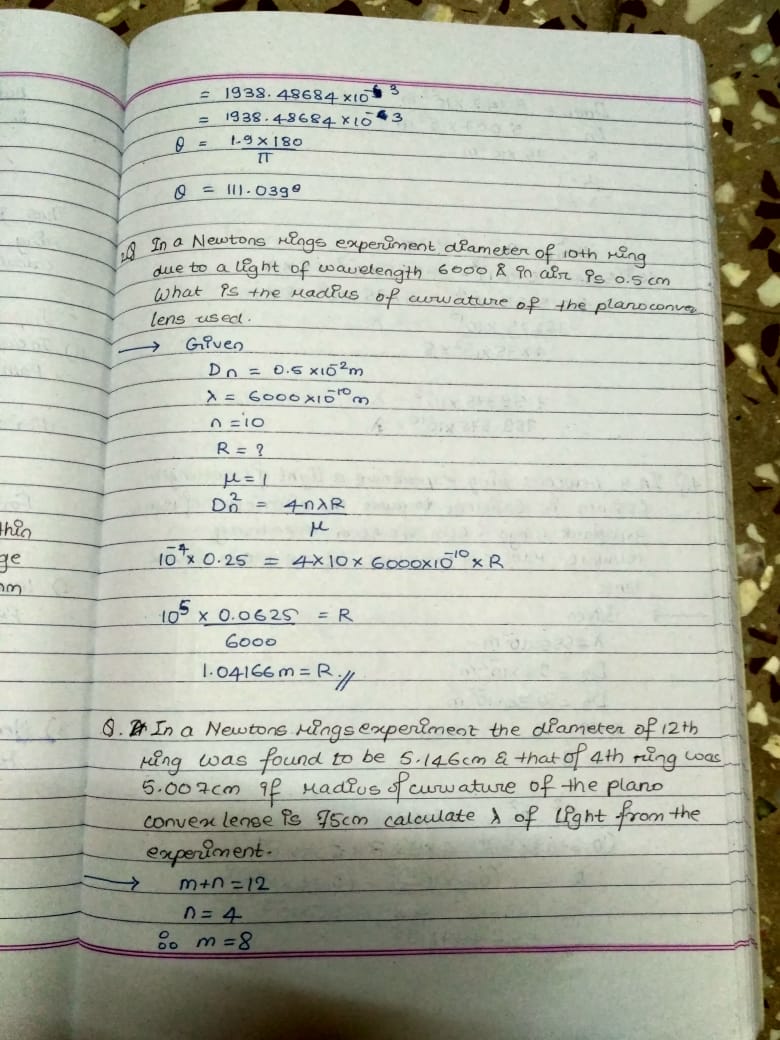 = 1938.48684 ×10 3
= 1938.48684 ×10 3
θ = 1.9 × 180
π
θ = 111.039°
Q In a Newtons rings experiment diameter of 10th ring
due to a light of wavelength 6000 Å in air is 0.5 cm
What is the radius of curvature of the planoconvex
lens used.
→ Given
Dn = 0.5 ×10⁻²m
λ = 6000×10⁻¹⁰m
n = 10
R = ?
μ = 1
Dn² = 4nλR
μ
10⁻⁴ × 0.25 = 4×10×6000×10⁻¹⁰ × R
10⁵ × 0.0625 = R
6000
1.04166 m = R //
Q. In a Newtons rings experiment the diameter of 12th
ring was found to be 5.146cm & that of 4th ring was
5.007cm if radius of curvature of the plano
convex lense is 75cm calculate λ of light from the
experiment.
→ m+n = 12
n = 4
∴ m = 8
thin
ge